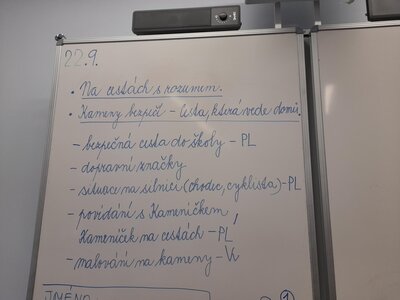 22.9.
• Na cestách s rozumem.
• Kameny bezpečí – cesta, která vede domů.
– bezpečná cesta do školy – PL
– dopravní značky
– situace na silnici (chodec, cyklista) – PL
– povídání s Kameníčkem,
Kameníček na cestách – PL
– malování na kameny – Vv
JMÉNO
1